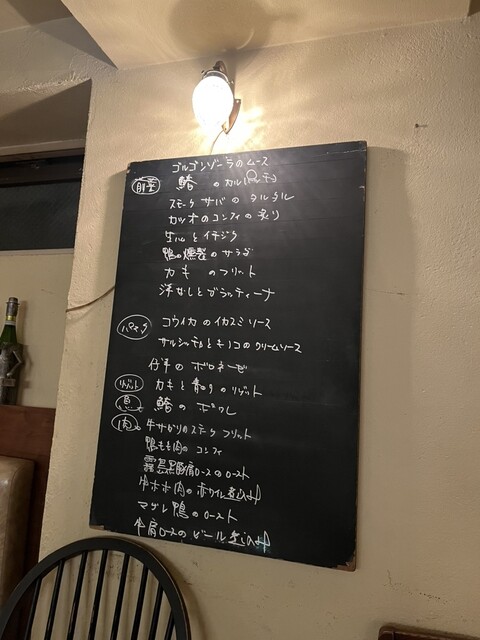 ゴルゴンゾーラのムース
前菜 鰆のカルパッチョ
スモークサバのタルタル
カツオのコンフィの炙り
生ハムとイチジク
鴨の燻製のサラダ
カキのフリット
洋なしとブラッティーナ
パスタ コウイカのイカスミソース
サルシッチャとキノコのクリームソース
仔羊のボロネーゼ
リゾット カキと青のりのリゾット
魚 鰆のポワレ
肉 牛サガリのステークフリット
鴨もも肉のコンフィ
霧島黒豚肩ロースのロースト
牛ホホ肉の赤ワイン煮込み
マグレ鴨のロースト
牛肩ロースのビール煮込み